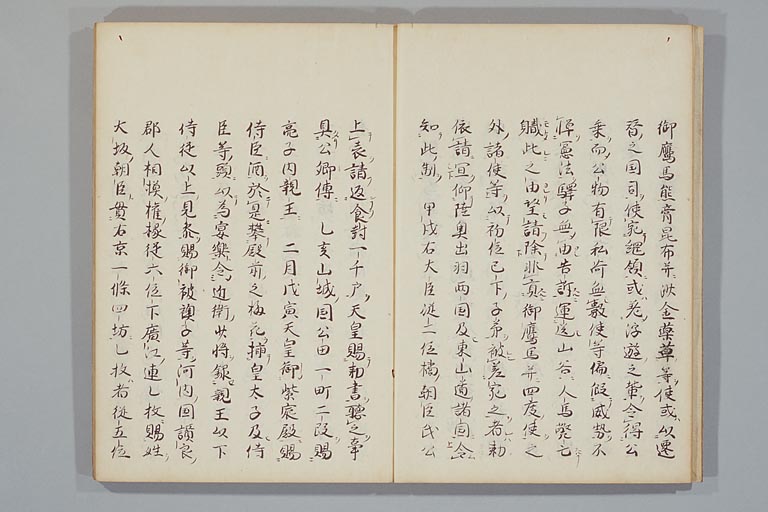 御鷹馬熊膏昆布并沙金薬草等使或以遷
替之国司使宛綱領或差浮遊之輩令得公
乗而公物有限私荷無数使等偏假威勢不
憚憲法驛子無由告訴運送山谷人馬斃亡
職此之由望請除非貢御鷹馬并四度使之
外諸使等以初位已下子弟被差宛之者勅
依請宣仰陸奥出羽両国及東山道諸国令
知此制　甲戌右大臣従二位橘朝臣氏公
上表請返食封一千戸天皇賜勅書聴之幸
具公卿傳　乙亥山城国公田一町二段賜
亮子内親王　二月戊寅天皇御紫宸殿賜
侍臣酒於是攀殿前之梅花挿皇太子及侍
臣等頭以為宴樂令近衛少将録親王以下
侍従以上見参賜御被襖子等河内国讃良
郡人相模権掾従六位下廣江連乙枚賜姓
大坂朝臣貫右京一條四坊乙枚者従五位